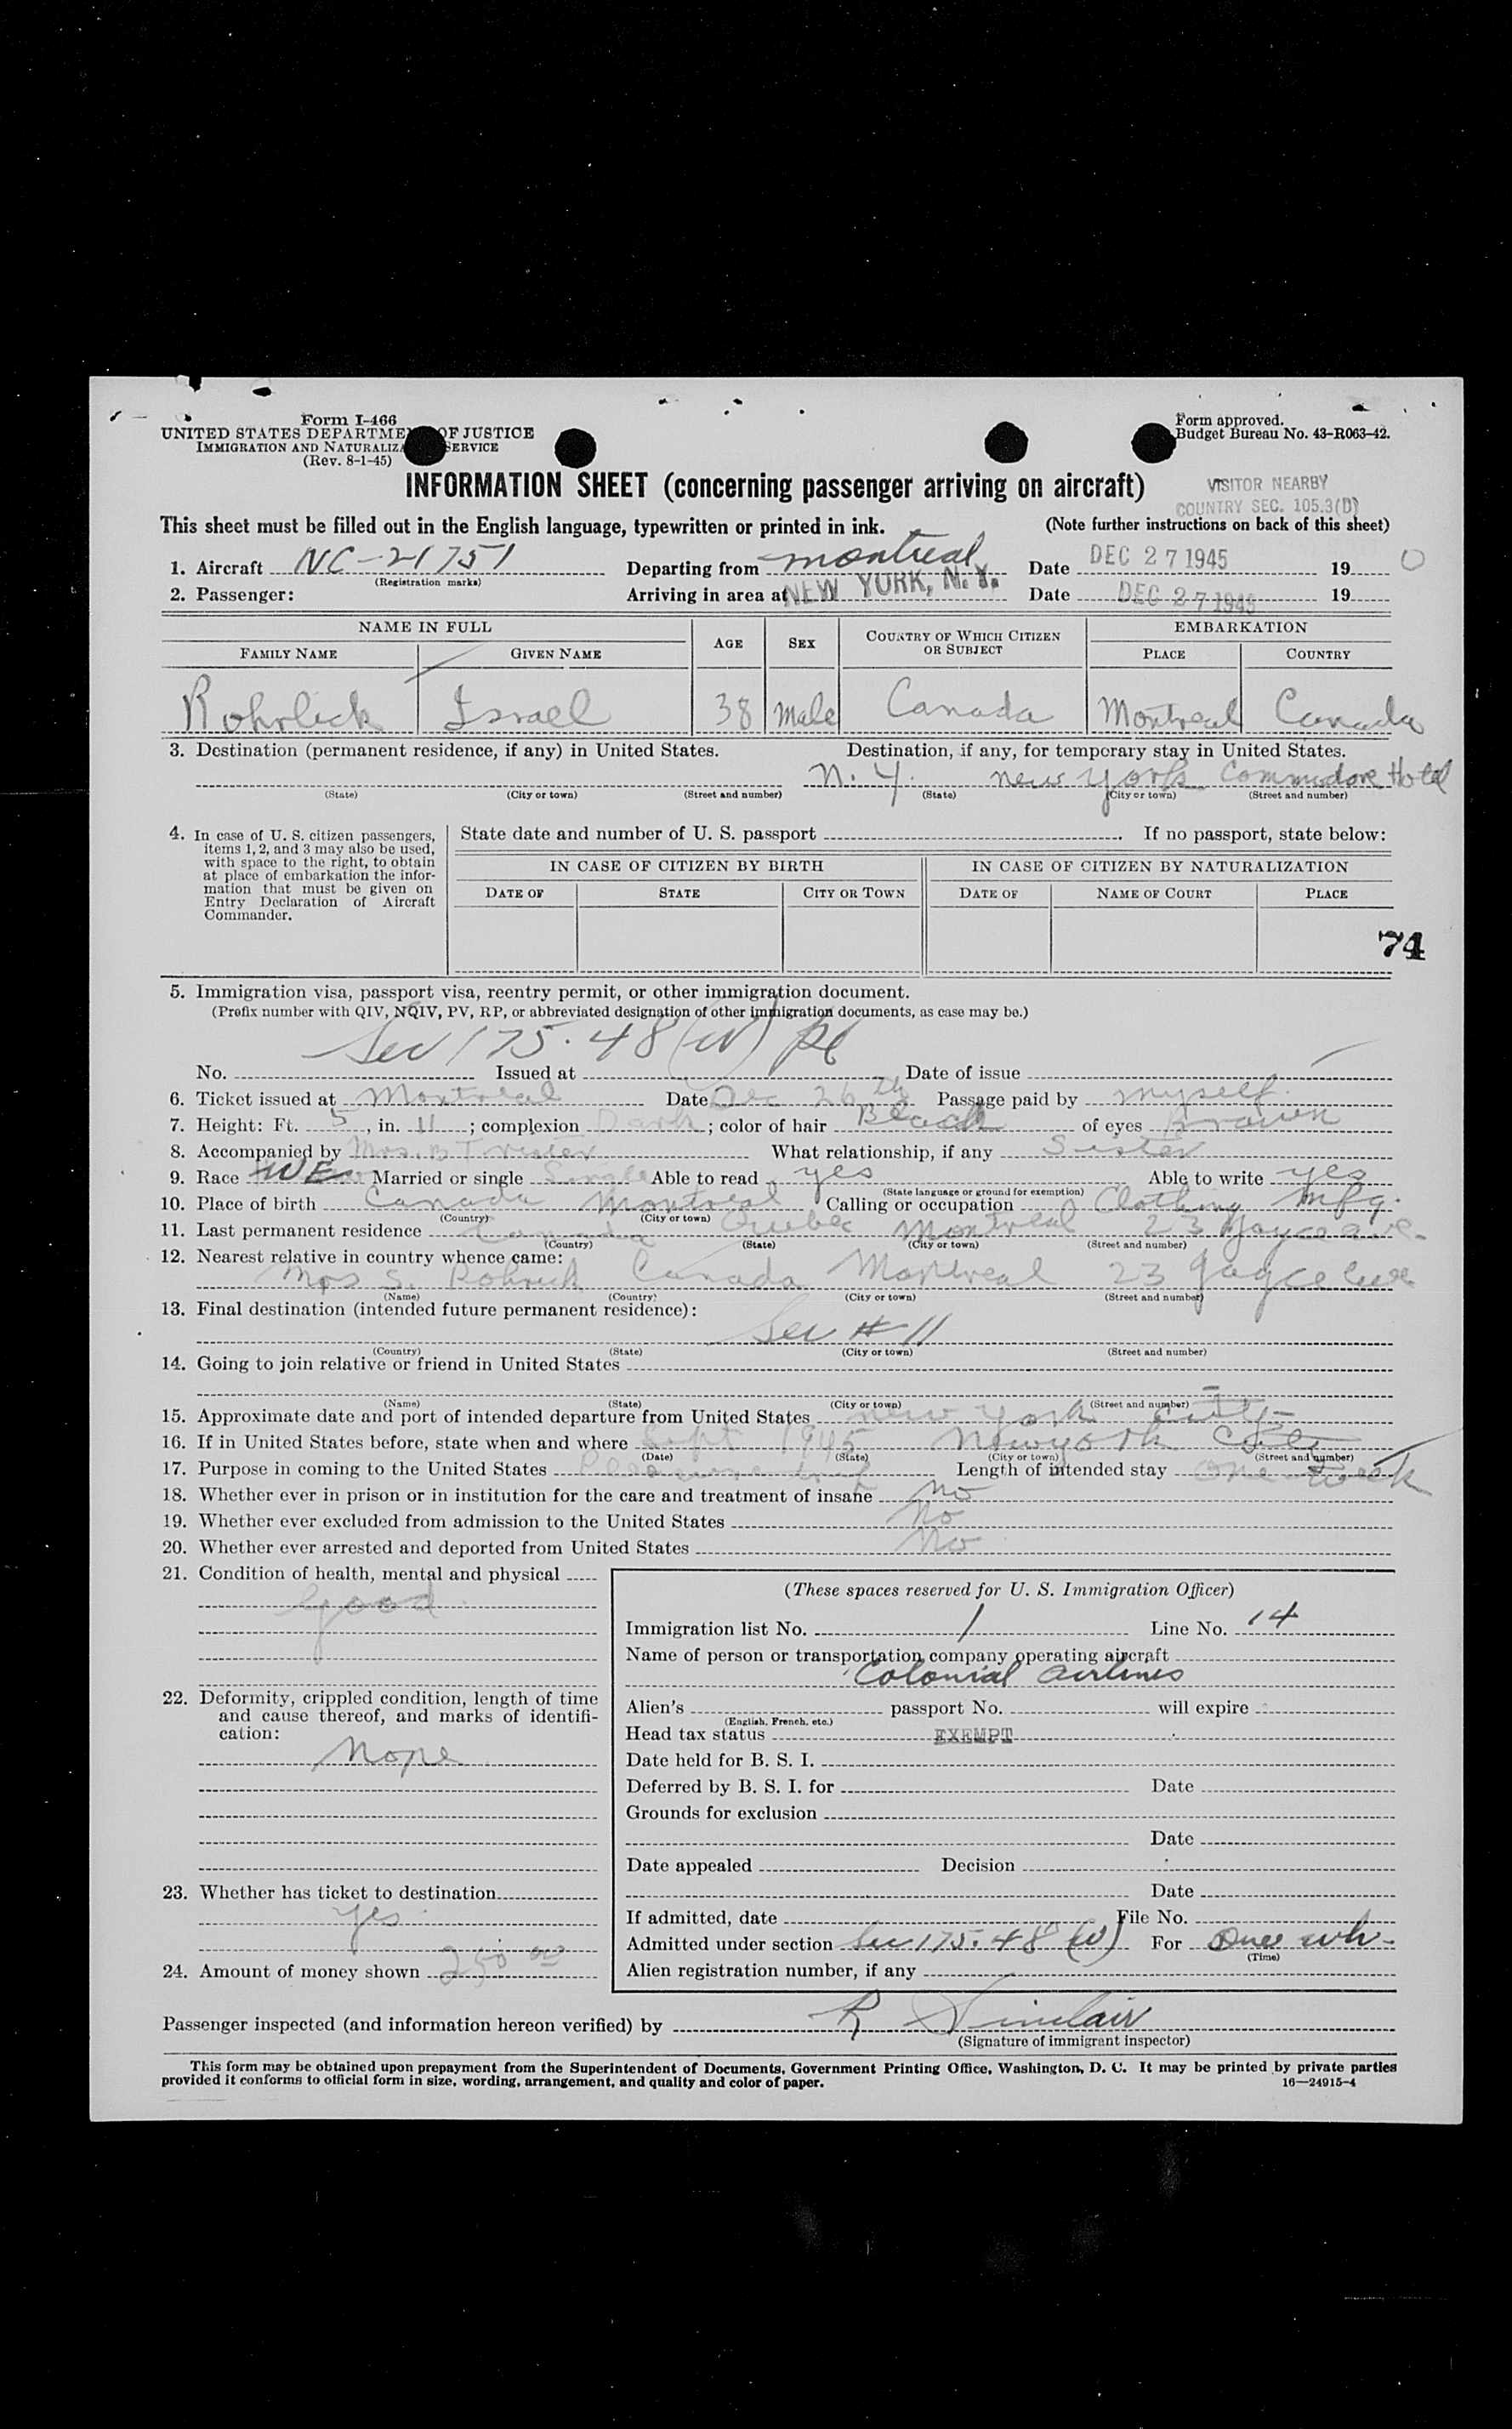 Form I-466
UNITED STATES DEPARTMENT OF JUSTICE
IMMIGRATION AND NATURALIZATION SERVICE
(Rev. 8-1-45)
Form approved.
Budget Bureau No. 43-R063-42.
INFORMATION SHEET (concerning passenger arriving on aircraft)
VISITOR NEARBY
COUNTRY SEC. 105.3(D)
This sheet must be filled out in the English language, typewritten or printed in ink. (Note further instructions on back of this sheet)
1. Aircraft NC-21751 Departing from montreal Date DEC 27 1945 19
(Registration marks)
2. Passenger: Arriving in area at NEW YORK, N. Y. Date DEC 27 1945 19
NAME IN FULL AGE SEX COUNTRY OF WHICH CITIZEN OR SUBJECT EMBARKATION
FAMILY NAME GIVEN NAME PLACE COUNTRY
Rohrlick Israel 38 Male Canada Montreal Canada
3. Destination (permanent residence, if any) in United States. Destination, if any, for temporary stay in United States.
N. Y. new york Commodore Hotel
(State) (City or town) (Street and number) (State) (City or town) (Street and number)
4. In case of U. S. citizen passengers,
items 1, 2, and 3 may also be used,
with space to the right, to obtain
at place of embarkation the infor-
mation that must be given on
Entry Declaration of Aircraft
Commander.
State date and number of U. S. passport . If no passport, state below:
IN CASE OF CITIZEN BY BIRTH IN CASE OF CITIZEN BY NATURALIZATION
DATE OF STATE CITY OR TOWN DATE OF NAME OF COURT PLACE
74
5. Immigration visa, passport visa, reentry permit, or other immigration document.
(Prefix number with QIV, NQIV, PV, RP, or abbreviated designation of other immigration documents, as case may be.)
Sec 175.48(w)
No. Issued at Date of issue
6. Ticket issued at Montreal Date Dec 26th Passage paid by myself
7. Height: Ft. 5, in. 11; complexion Dark; color of hair Black of eyes Brown
8. Accompanied by Mrs. B What relationship, if any Sister
9. Race Married or single Single Able to read yes Able to write yes
(State language or ground for exemption)
10. Place of birth Canada Montreal Calling or occupation Clothing Mfg.
(Country) (City or town)
11. Last permanent residence Canada Quebec Montreal 23 Joyce ave.
(Country) (State) (City or town) (Street and number)
12. Nearest relative in country whence came:
Mrs S. Canada Montreal 23 Joyce ave
(Name) (Country) (City or town) (Street and number)
13. Final destination (intended future permanent residence):
See # 11
(Country) (State) (City or town) (Street and number)
14. Going to join relative or friend in United States
(Name) (State) (City or town) (Street and number)
15. Approximate date and port of intended departure from United States new york city
16. If in United States before, state when and where Sept 1945 New york City
(Date) (State) (City or town) (Street and number)
17. Purpose in coming to the United States Length of intended stay one week
18. Whether ever in prison or in institution for the care and treatment of insane No
19. Whether ever excluded from admission to the United States No
20. Whether ever arrested and deported from United States No
21. Condition of health, mental and physical
good
22. Deformity, crippled condition, length of time
and cause thereof, and marks of identifi-
cation:
None
23. Whether has ticket to destination
yes
24. Amount of money shown 250 00
(These spaces reserved for U. S. Immigration Officer)
Immigration list No. 1 Line No. 14
Name of person or transportation company operating aircraft
Colonial Airlines
Alien's passport No. will expire
(English, French, etc.)
Head tax status EXEMPT
Date held for B. S. I.
Deferred by B. S. I. for Date
Grounds for exclusion
Date
Date appealed Decision
Date
If admitted, date File No.
Admitted under section Sec 175.48 (w) For One wk.
(Time)
Alien registration number, if any
Passenger inspected (and information hereon verified) by R Sinclair
(Signature of immigrant inspector)
This form may be obtained upon prepayment from the Superintendent of Documents, Government Printing Office, Washington, D. C. It may be printed by private parties
provided it conforms to official form in size, wording, arrangement, and quality and color of paper. 16—24915-4